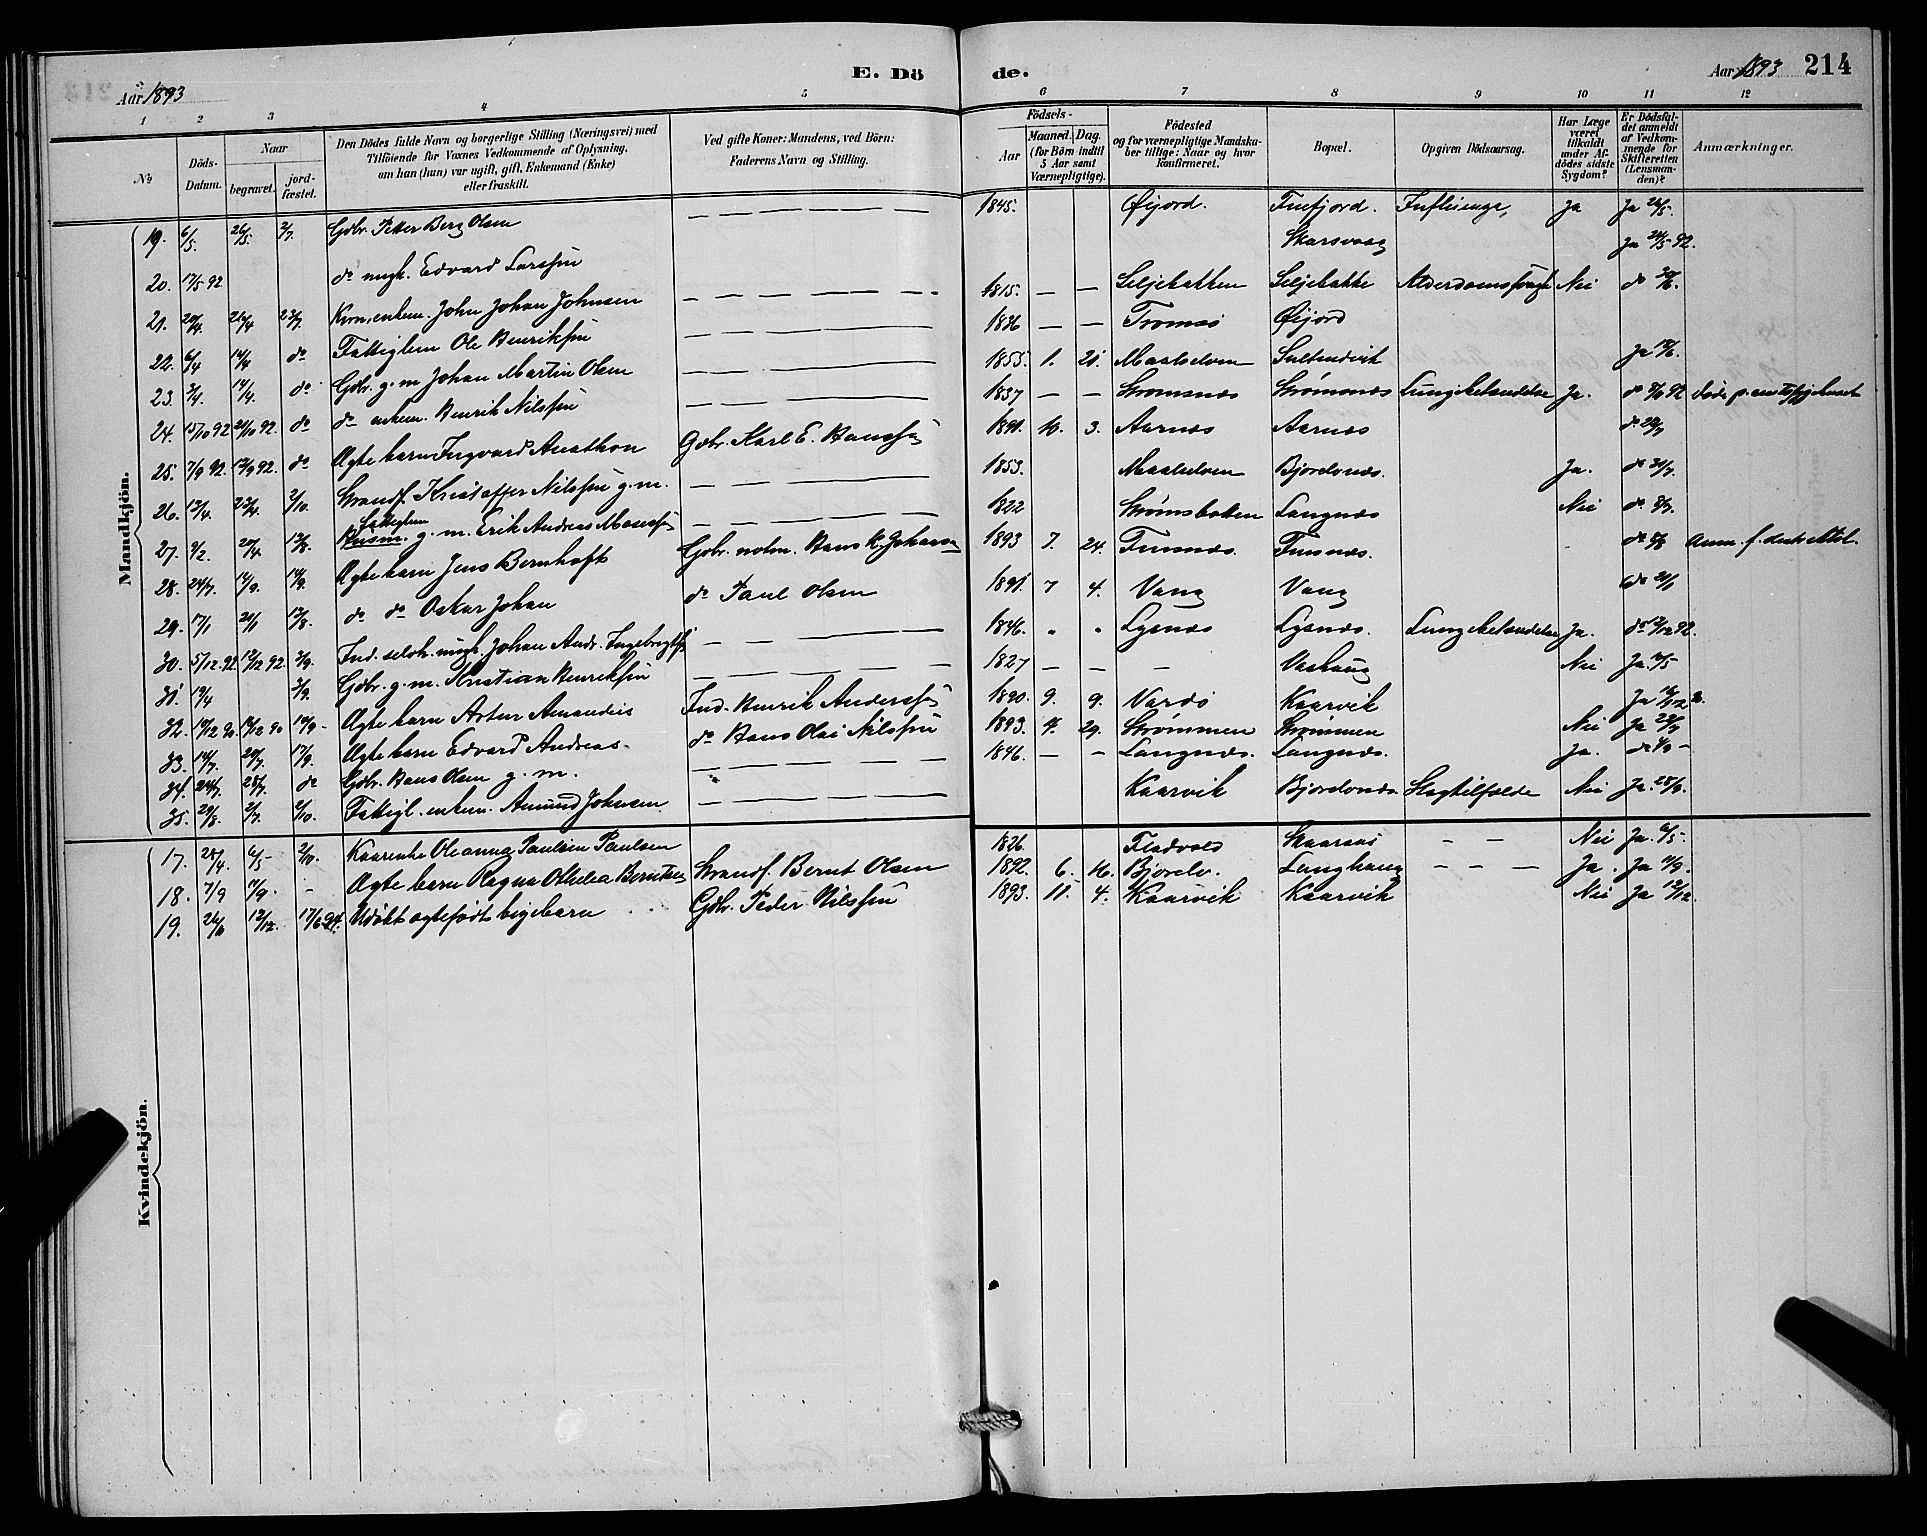 E. Dö de.
Aar 1893
Aar 1893 214
1 2 3 4 5 6 7 8 9 10 11 12
No
Döds-Datum.
Naar
begravet.
jord-fæstet.
Den Dödes fulde Navn og borgerlige Stilling (Næringsvei) med
Tilföiende for Voxnes Vedkommende af Oplysning,
om han (hun) var ugift, gift, Enkemand (Enke)
eller fraskilt.
Ved gifte Koner: Mandens, ved Börn:
Faderens Navn og Stilling.
Födsels-
Aar
Maaned. Dag.
(for Börn indtil
5 Aar samt
Værnepligtige).
Födested
og for værnepligtige Mandska-
ber tillige: Naar og hvor
konfirmeret.
Bopæl.
Opgiven Dödsaarsag.
Har Læge
været
tilkaldt
under Af-
dödes sidste
Sygdom?
Er Dödsfal-
det anmeldt
af Vedkom-
mende for
Skifteretten
(Lensman-
den)?
Anmærkninger.
Mandkjön.
19. 6/5. 26/5. 2/7. Gdbr. Petter Berg Olsen 1845. Øijord. Finfjord. Influenza, Ja Ja 26/5.
20. 17/5 92 do ungk. Edvard Larssen Skarsvaag Ja 24/5 92.
21. 23/7. enkem. John Johan Johnsen 1815. Seljebakken Seljebakke Nei do
22. 6/4 14/4 do Fattiglem Ole Henriksen 1836 Tromsö Øijord
23. 14/4. do Gdbr. g. m Johan Martin Olsen 1855. 1. 21. Maalselven Ja
24. 15/10 92 21/10 92. do do enkem. Henrik Nilssen 1837 Strømsnæs Strømsnæs Lungebetændelse Ja. do
25. 7/9 92. 12/9 92. do Ægte barn Ingvard Anathon Gdbr. Karl E. Hanssen 1891. 10. 3. Aarnæs Aarnæs
26. 2/10. Strandf. Kristoffer Nilssen g. m. 1853. Maalselven Bjorelvnæs. Ja.
27. 9/2. Fattiglem Husm. g. m. Erik Andreas 1822 Strømsbotten Langnæs Nei
28. 24/7. 14/9. 14/9. Ægte barn Jens Bernhoft Gdbr. Hans K. Johansen 1893 7. 24. Finnsnæs. Finnsnæs.
29. 17/1 13/8. do do Oskar Johan do Paul Olsen 1891 7 4. Vang Vang
30. 5/12 92. 12/12 92. 3/9. Ind. ungk. Johan Andr. Ingebrigtsen 1846. Lysnæs Lysnæs. Lungebetændelse Ja.
31. 3/9. Gdbr. g. m. Kristian Henriksen 1827 Vashaug Nei
32. Ægte barn Artur Amandus Ind. Henrik Anderssen 1890. 9. 9. Vardö Kaarvik
33. 14/7. 17/9. Ægte barn Edvard Andreas. do Hans Olai Nilssen 1893. 4. 29. Strømmen Strømmen Nei Ja
34. 24/7. 28/7. do Gdbr. Hans Olsen g. m. 1846. Langnæs. Langnæs. Ja.
35. 29/8. 2/7. 2/10. Fattigl. enkem. Amund Johnsen Kaarvik Bjorelvnæs Slagtilfælde Nei Ja.
Kvindekjön.
17. 28/4. 6/5- 2/10. Kaarenke Oleanna Paulsen Paulsen 1826. Fladvold Skaaraas Nei Ja. 6/5-
18. 7/9 Ægte barn Ragna Othelia Berntsen Strandf. Bernt Olsen 1892. 6. 16. Bjorelv. Langhaug Ja. Ja
19. 12/12. 17/6 94. Udøbt ægtefødt pigebarn Gdbr. Peder Nilssen 1893. 11. 4. Kaarvik Kaarvik Nei Ja 12/12.